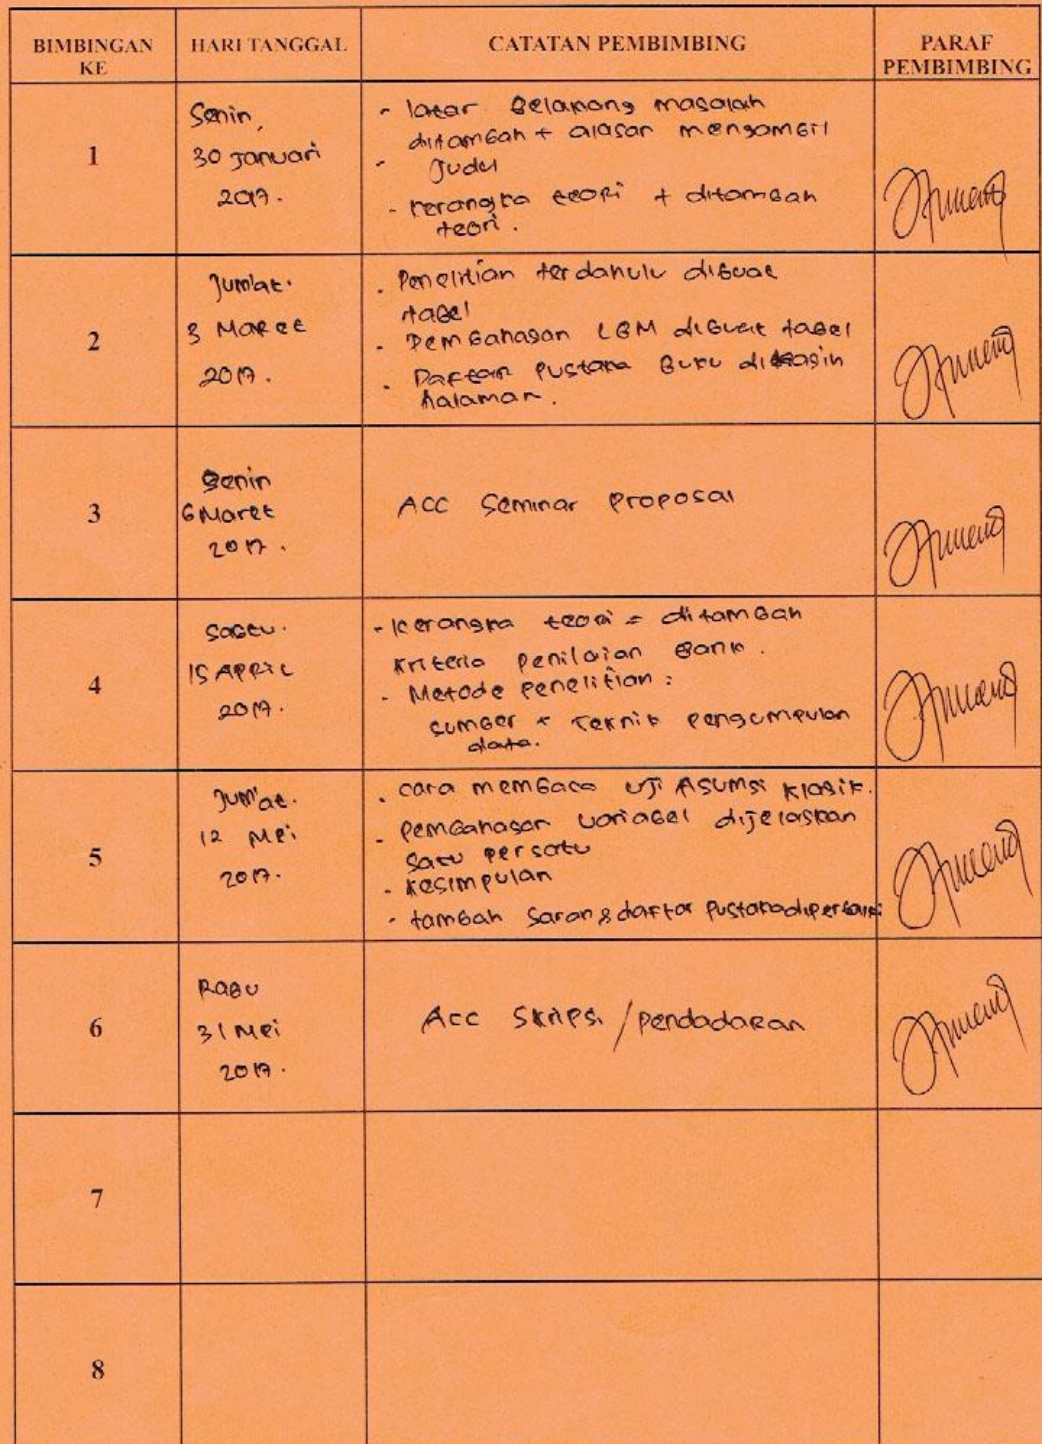 BIMBINGAN KE HARI TANGGAL CATATAN PEMBIMBING PARAF PEMBIMBING
1
Senin,
30 Januari
2017.
- latar Belakang masalah
ditambah + alasan mengambil
- Judul
- Kerangka teori + ditambah
teori.
2
Jum'at.
3 Maret
2017.
- Penelitian terdahulu dibuat
tabel
- Pembahasan LBM dibuat tabel
- Daftar Pustaka Buku dikasih
halaman.
3
Senin
6 Maret
2017.
ACC Seminar Proposal
4
Sabtu.
15 April
2017.
- Kerangka teori = ditambah
Kriteria penilaian Bank.
- Metode Penelitian :
sumber + Teknik pengumpulan
data.
5
Jum'at.
12 Mei
2017.
- cara membaca Uji Asumsi Klasik.
- Pembahasan variabel dijelaskan
Satu persatu
- Kesimpulan
- tambah Saran & daftar Pustaka diperbaiki
6
Rabu
31 Mei
2017.
Acc Skripsi / Pendadaran
7
8